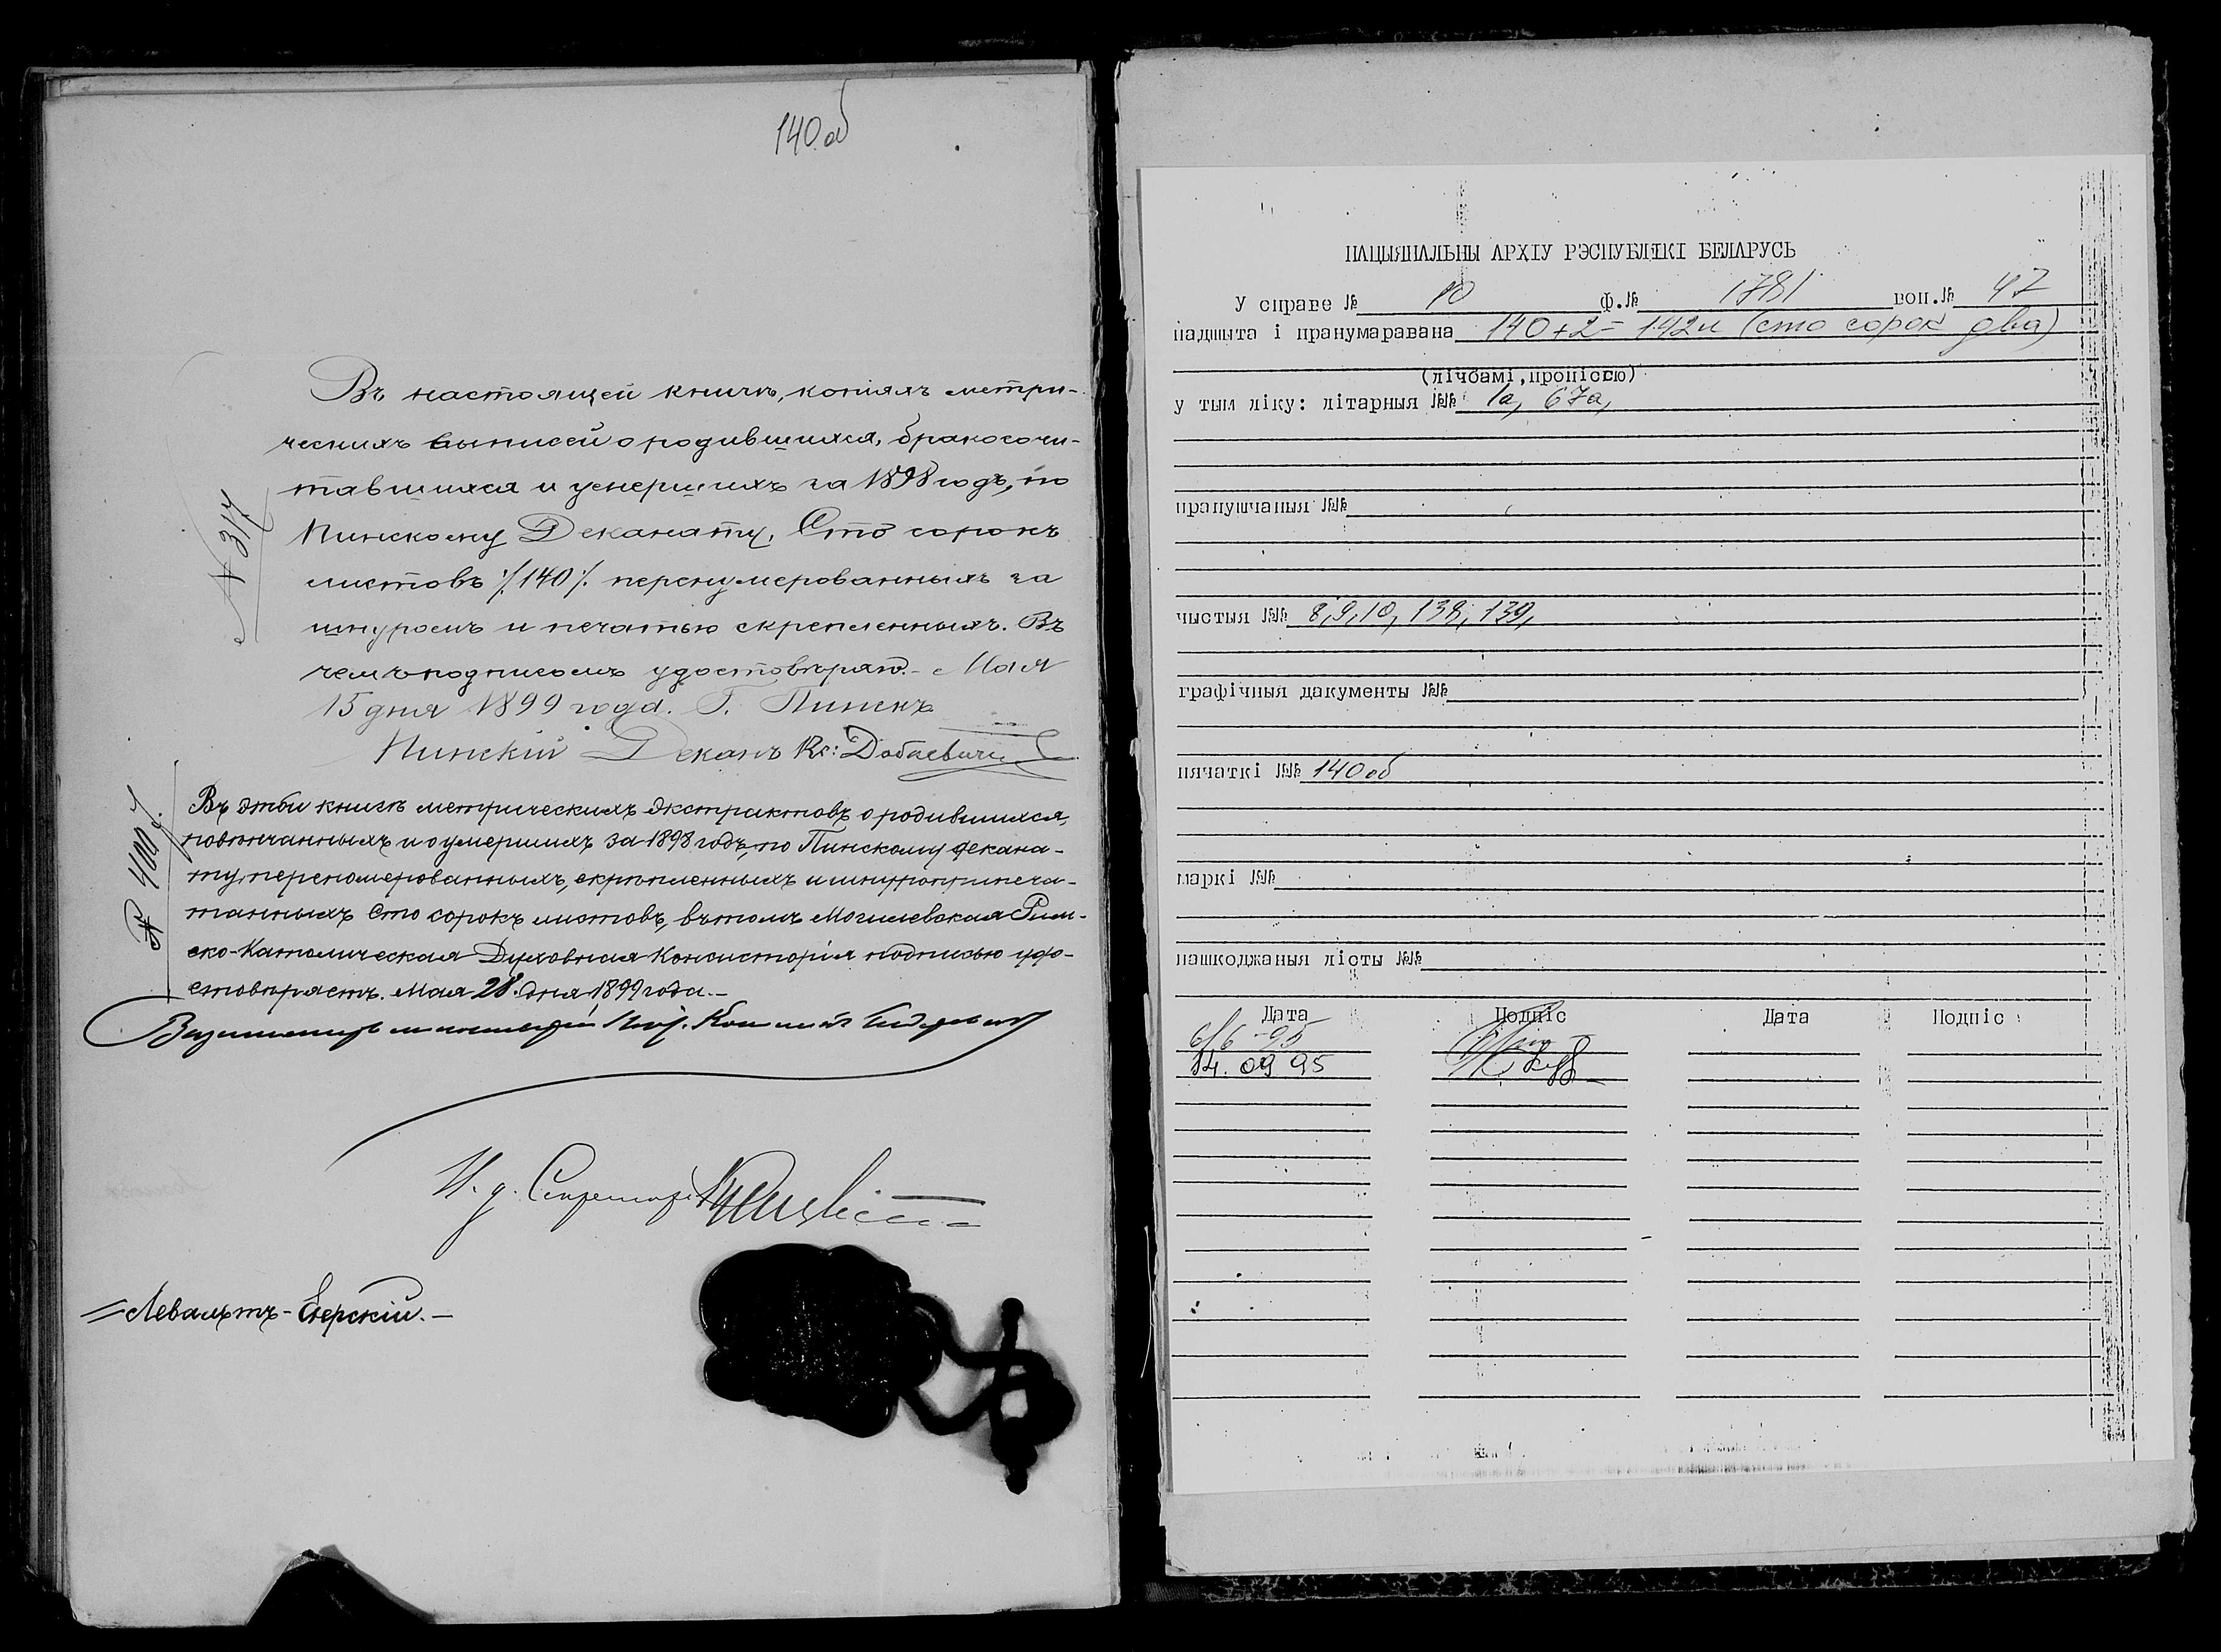 140 об
Въ настоящей книгѣ, копіяхъ метри-
ческихъ выписей о родившихся, бракосочи-
тавшихся и умершихъ за 1898 годъ, по
Пинскому Деканату, Сто сорокъ
листовъ ./140/. перенумерованныхъ за
шнуромъ и печатью скрепленныхъ. Въ
чемъ подписомъ удостовѣряю.- Мая
15 дня 1899 года. Г. Пинскъ
Пинскій Деканъ Кс: 
№ 317
Въ этой книгѣ метрическихъ экстрактовъ о родившихся,
повѣнчанныхъ и о умершихъ за 1898 годъ, по Пинскому декана-
ту, переномерованныхъ, скрѣпленныхъ и шнуроприпеча-
танныхъ Сто сорокъ листовъ, въ томъ Могилевская Рим-
ско-Католическая Духовная Консисторія подписью удо-
стовѣряетъ. Мая 28 дня 1899 года.-
№ 4007.
И. д. Секретаря
=Левальтъ-Езерскій.-
НАЦЫЯНАЛЬНЫ АРХІУ РЭСПУБЛІКІ БЕЛАРУСЬ
У справе № 10 ф.№ 1781 воп.№ 47
падшыта і пранумаравана 140+2=142л (сто сорок два)
(лічбамі,пропіссю)
у тым ліку: літарныя №№ 1а, 67а,
прапушчаныя №№
чыстыя №№ 8,9,10, 138, 139,
графічныя дакументы №№
пячаткі №№ 140об
маркі №№
пашкоджаныя лісты №№
Дата Подпіс Дата Подпіс
6/6-95
14.09 95